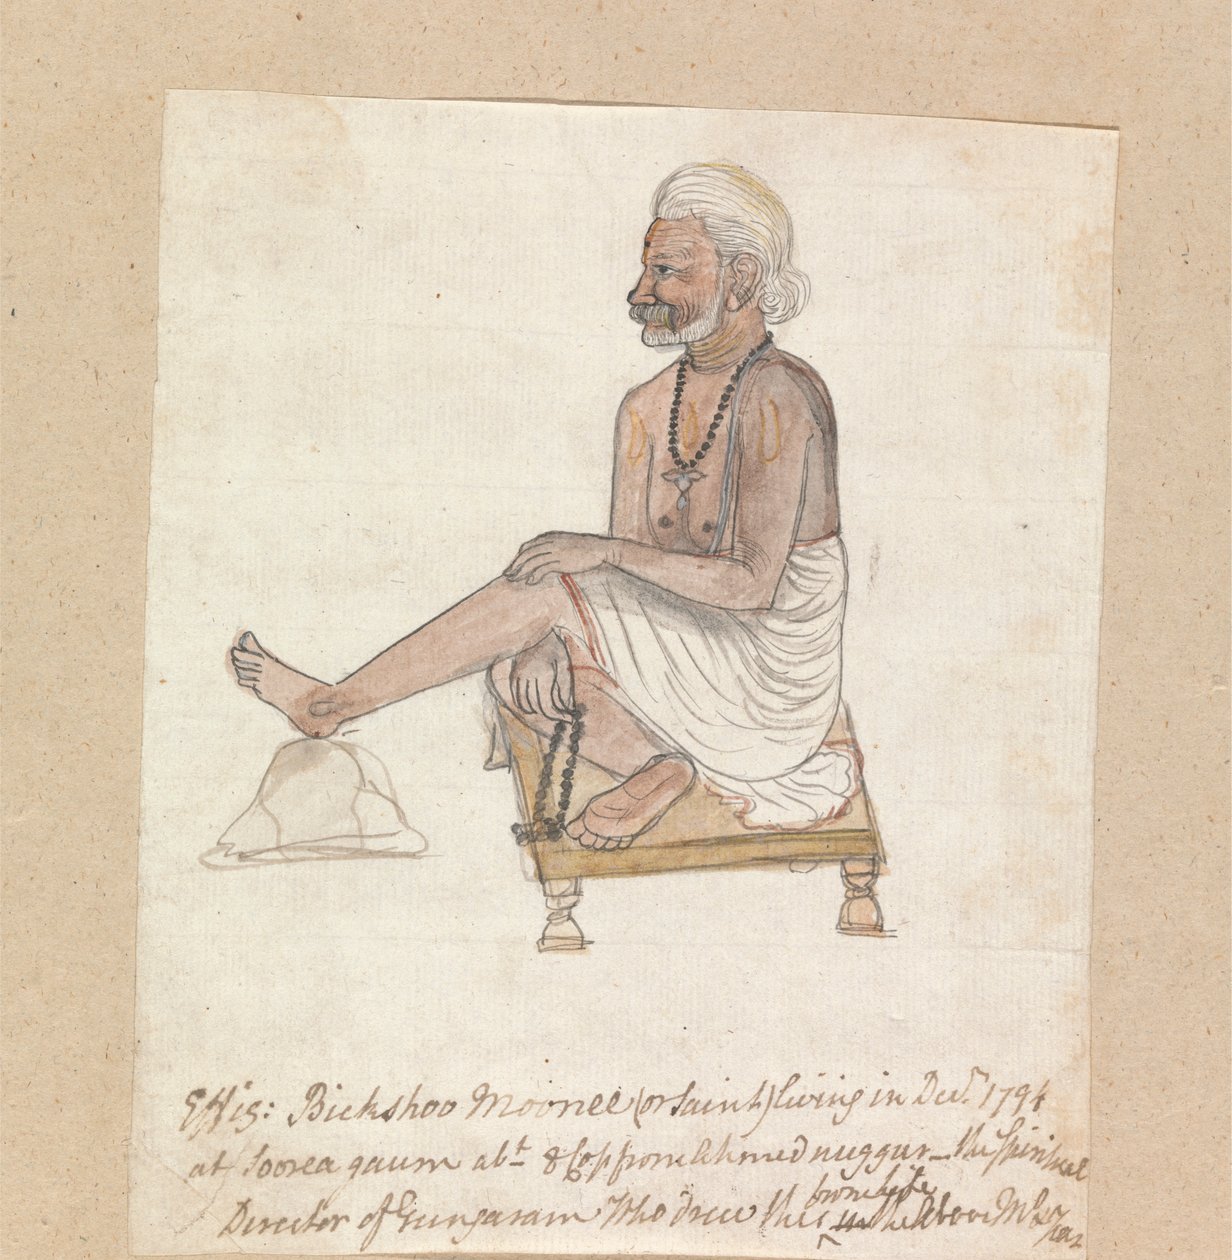 Effig: Bickshoo Moonee (or Saint) living in Decr. 1794
at Soorea gaum abt. 8 Cos from Ahmednuggur _ the Spiritual
Director of Gungaram Who drew this
from life
in the above